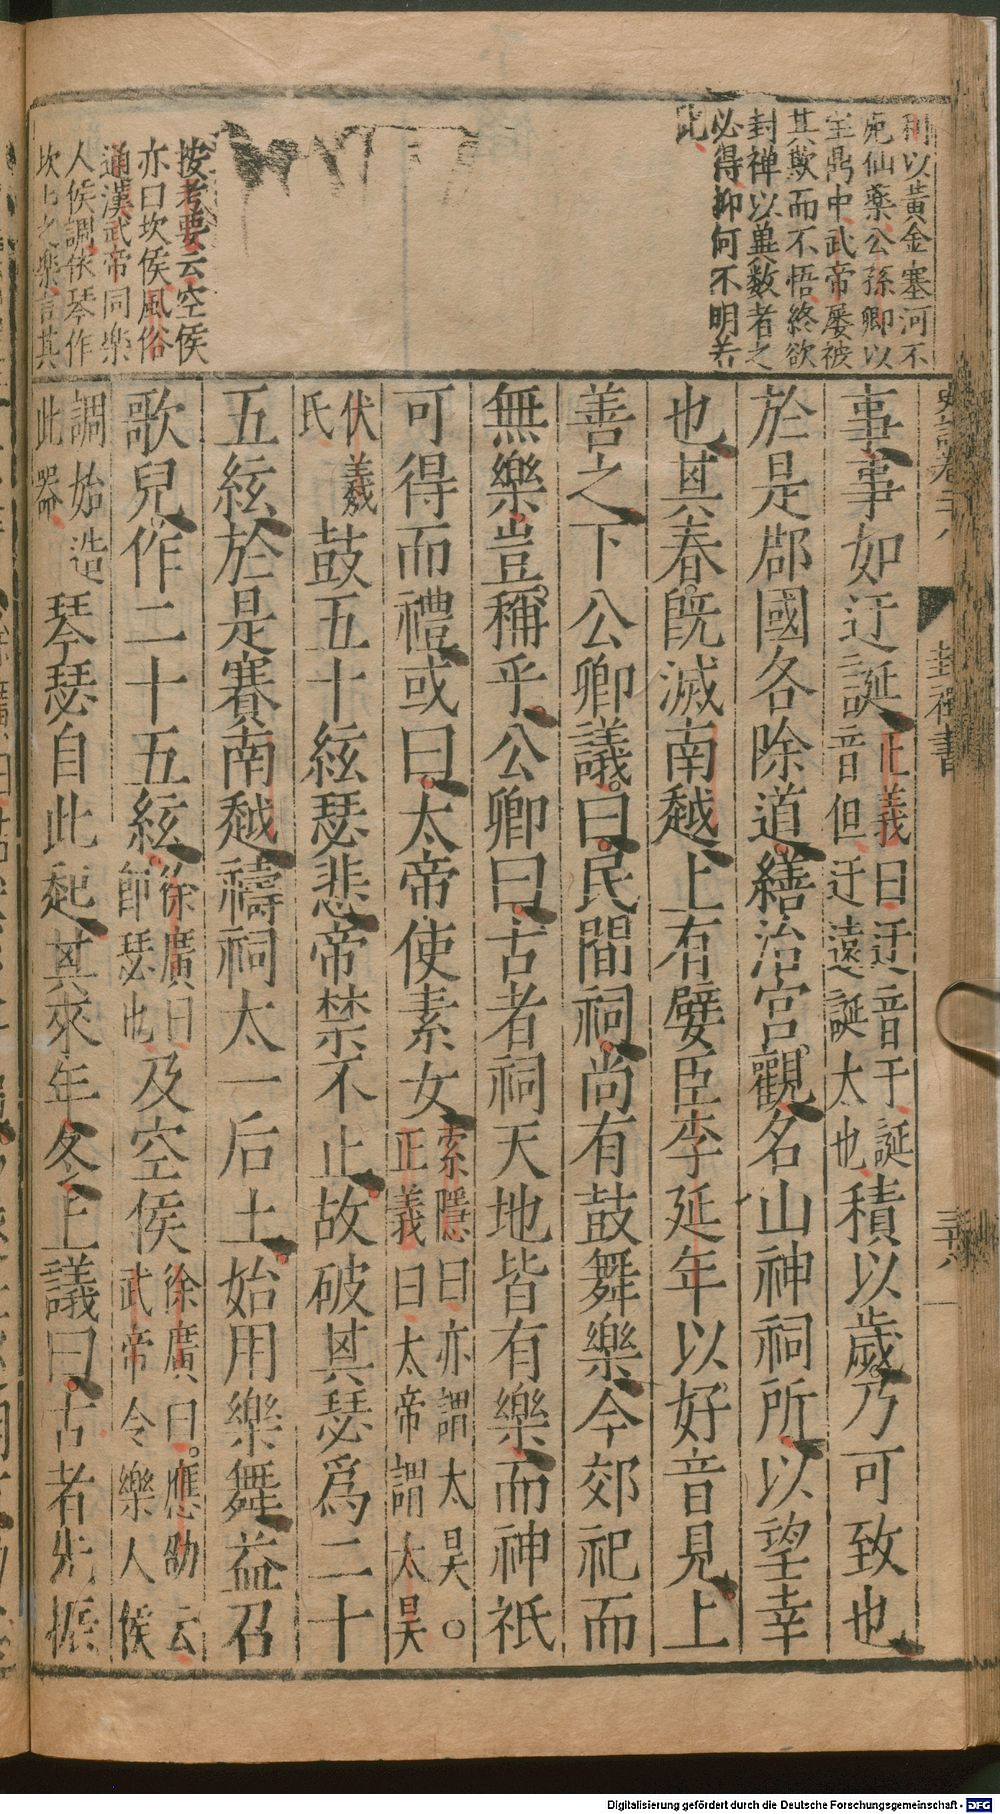 利以黃金塞河不
死仙藥公孫卿以
宝鼎中武帝屡被
其欺而不悟終欲
封禅以異数者之
必得抑何不明若
此
按考要云空侯
亦曰坎侯風俗
通漢武帝同樂
人侯調依琴作
坎坎之樂言其
史記卷二十八
封禪書
三十八
事事如迂誕正義曰迂音于誕音但迂遠誕大也積以歲乃可致也
於是郡國各除道繕治宮觀名山神祠所以望幸
也其春既滅南越上有嬖臣李延年以好音見上
善之下公卿議曰民間祠尚有鼓舞樂今郊祀而
無樂豈稱乎公卿曰古者祠天地皆有樂而神祇
可得而禮或曰太帝使素女索隱曰亦謂太昊○正義曰太帝謂太昊
伏羲氏鼓五十絃瑟悲帝禁不止故破其瑟爲二十
五絃於是賽南越禱祠太一后土始用樂舞益召
歌兒作二十五絃徐廣曰節瑟也及空侯徐廣曰應劭云武帝令樂人侯
調始造此器琴瑟自此起其來年冬上議曰古者先振
Digitalisierung gefördert durch die Deutsche Forschungsgemeinschaft - DFG